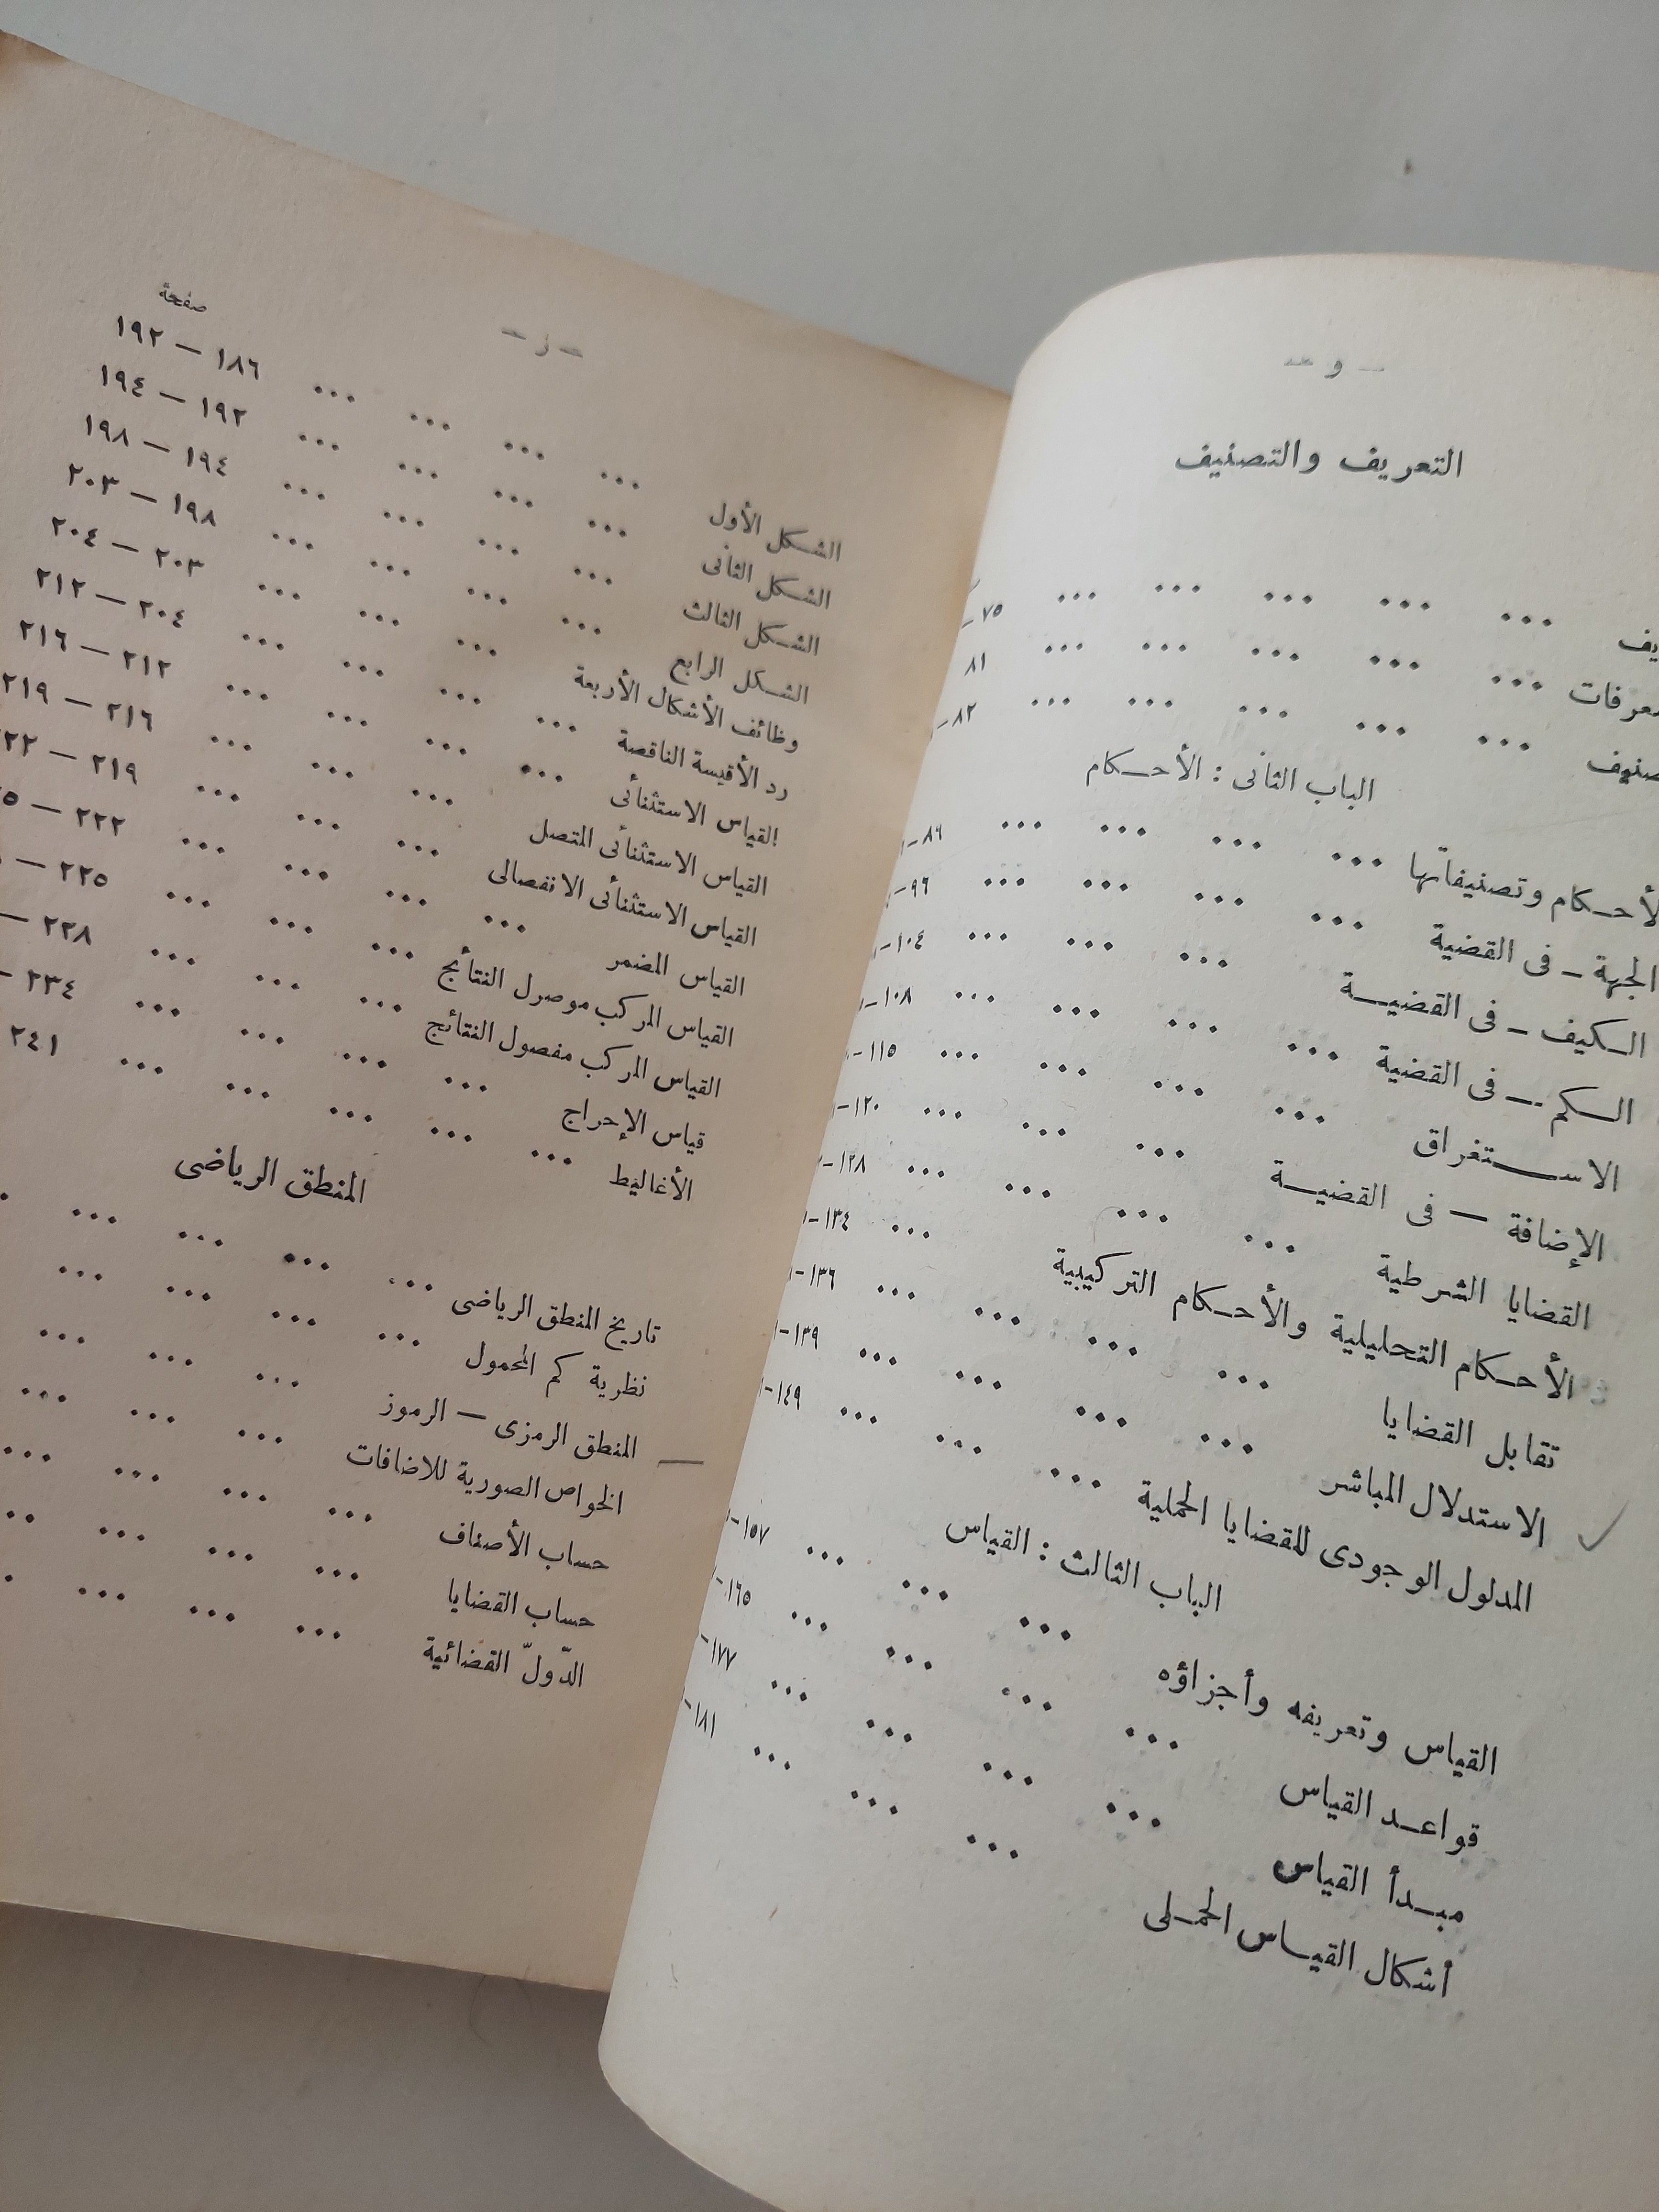 — و —
التعريف والتصنيف
... ... ... ... ... ٧٥ –
... ... ... ... ... ٨١
... ... ... ... ... ٨٢ –
الباب الثانى : الأحكام
الأحكام وتصنيفاتها ... ... ... ... ٨٦ –
الجهة – فى القضية ... ... ... ... ٩٦ –
الكيف – فى القضية ... ... ... ١٠٤ –
الكم – فى القضية ... ... ... ... ١٠٨ –
الاستغراق ... ... ... ... ١١٥ –
الإضافة — فى القضية ... ... ... ١٢٠ –
القضايا الشرطية ... ... ... ... ١٢٨ –
الأحكام التحليلية والأحكام التركيبية ... ١٣٤ –
تقابل القضايا ... ... ... ... ١٣٦ –
الاستدلال المباشر ... ... ... ... ١٣٩ –
المدلول الوجودى للقضايا الحملية ... ... ... ١٤٩ –
الباب الثالث : القياس
القياس وتعريفه وأجزاؤه ... ... ... ١٥٧ –
قواعد القياس ... ... ... ... ١٦٥ –
مبدأ القياس ... ... ... ... ١٧٧ –
أشكال القياس الحملى ... ... ... ١٨١ –
— ز —
صفحة
الشكل الأول ... ... ... ... ١٨٦ — ١٩٢
الشكل الثانى ... ... ... ... ١٩٢ — ١٩٤
الشكل الثالث ... ... ... ... ١٩٤ — ١٩٨
الشكل الرابع ... ... ... ... ١٩٨ — ٢٠٣
وظائف الأشكال الأربعة ... ... ... ٢٠٣ — ٢٠٤
رد الأقيسة الناقصة ... ... ... ... ٢٠٤ — ٢١٢
القياس الاستثنائى ... ... ... ... ٢١٢ — ٢١٦
القياس الاستثنائى المتصل ... ... ... ٢١٦ — ٢١٩
القياس الاستثنائى الانفصالى ... ... ... ٢١٩ —
القياس المضمر ... ... ... ... ٢٢٢ —
القياس المركب موصول النتائج ... ... ... ٢٢٥ —
القياس المركب مفصول النتائج ... ... ... ٢٢٨ —
قياس الإحراج ... ... ... ... ٢٣٤ –
الأغاليط ... ... ... ... ... ٢٤١
المنطق الرياضى
تاريخ المنطق الرياضى ... ... ... ...
نظرية كم المحمول ... ... ... ...
المنطق الرمزى — الرموز ... ... ...
الخواص الصورية للاضافات ... ... ...
حساب الأصناف ... ... ... ...
حساب القضايا ... ... ... ...
الدّولّ القضائية ... ... ...